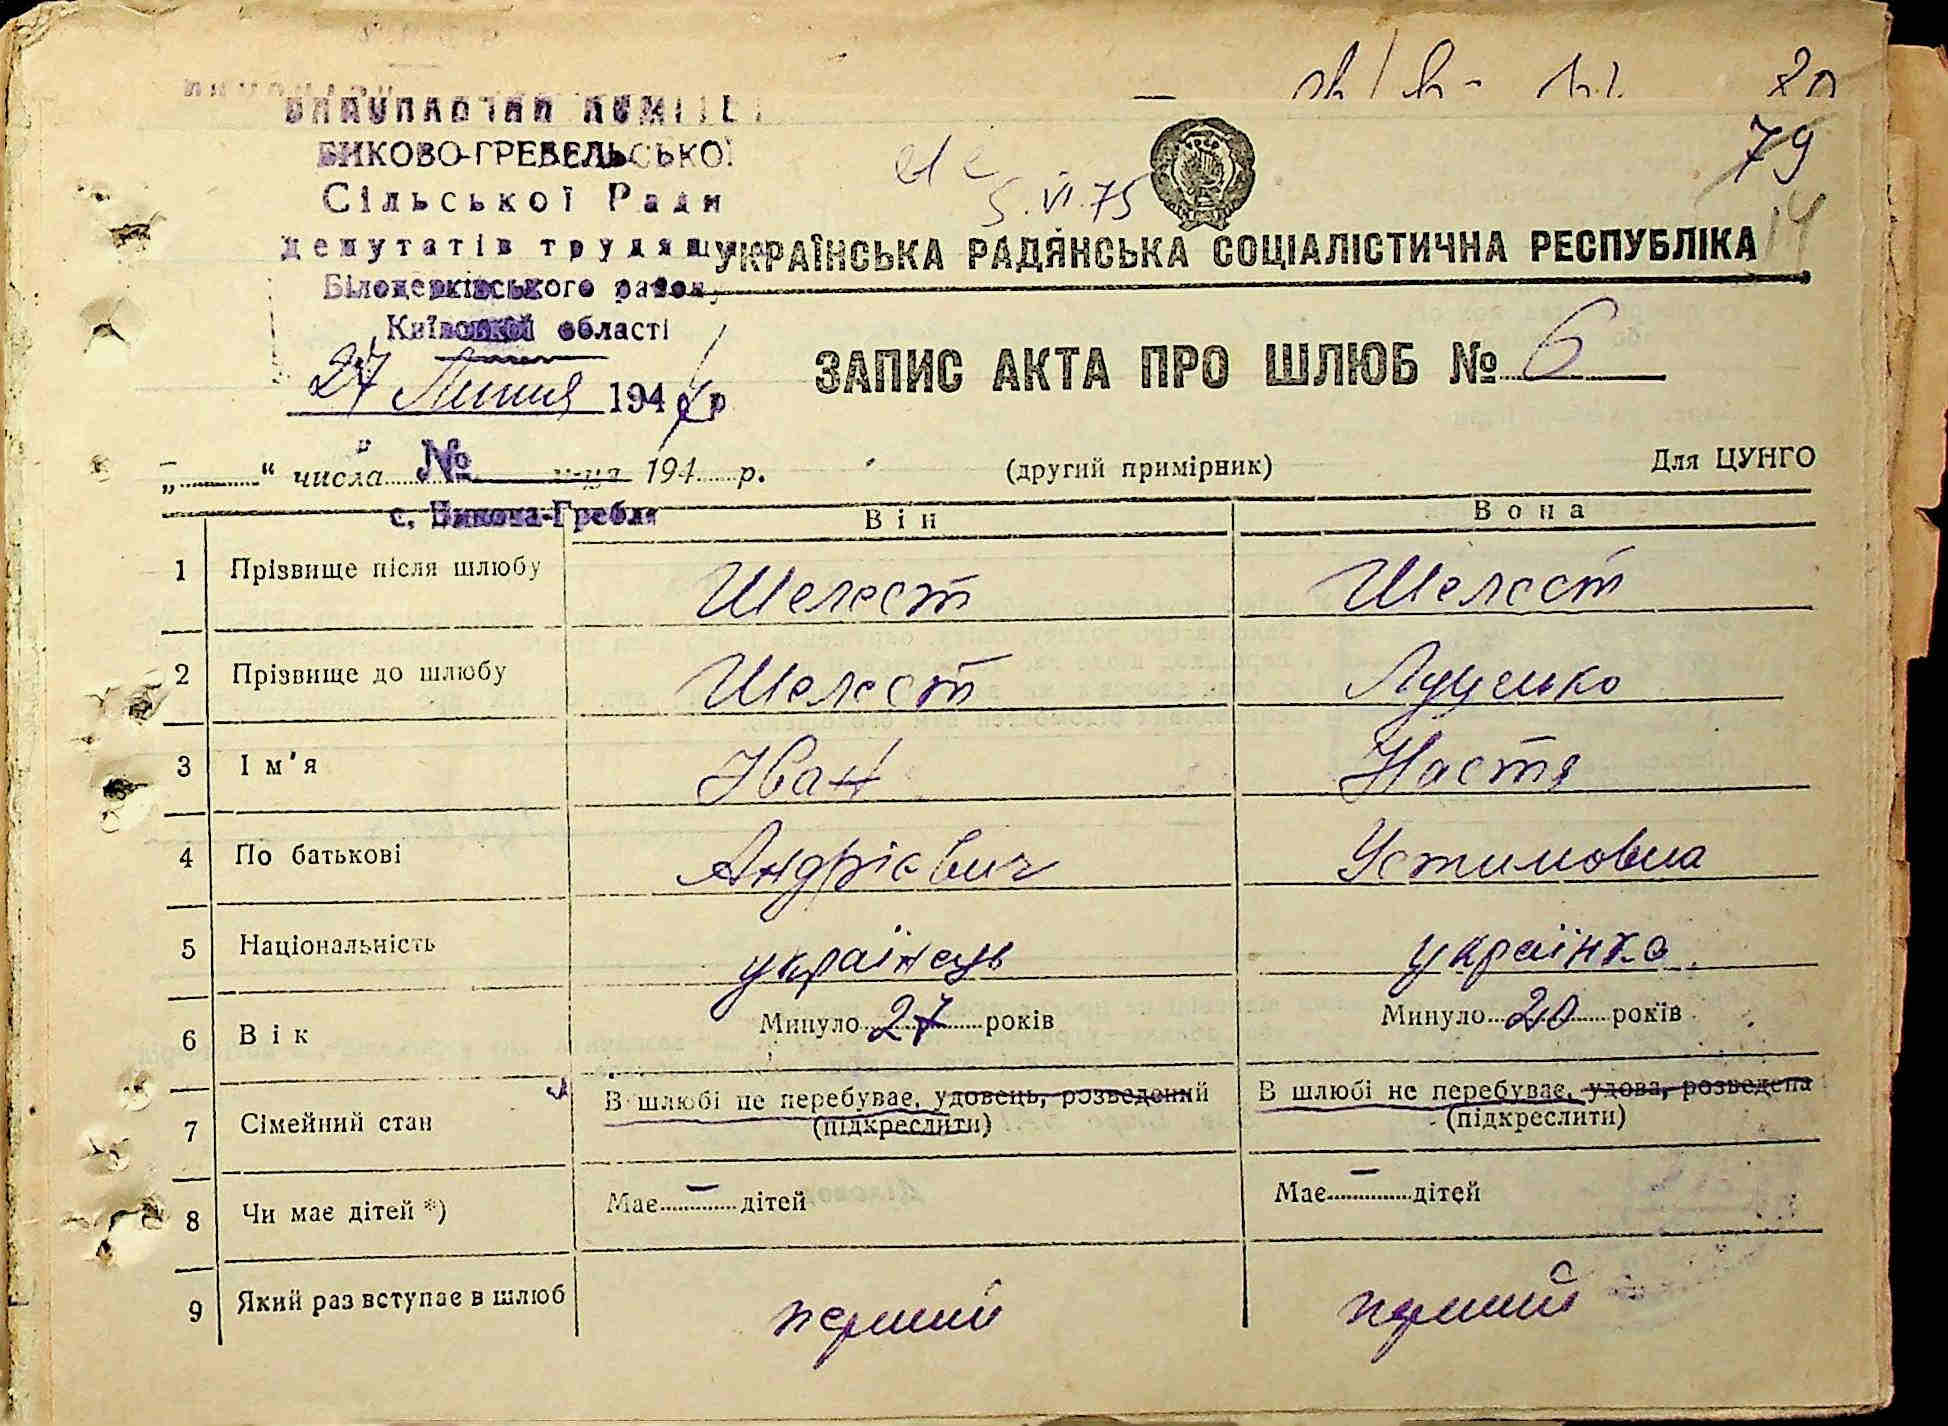 79
14
БИКОВО-ГРЕБЕЛЬСЬКОЇ
Сільської Ради
5.VI.75
депутатів трудящ
УКРАЇНСЬКА РАДЯНСЬКА СОЦІАЛІСТИЧНА РЕСПУБЛІКА
Білоцерківського району
Київської області
27 Липня 194 р
ЗАПИС АКТА ПРО ШЛЮБ № 6
„ “ числа № 194 р.
(другий примірник)
Для ЦУНГО
с. Бикова-Гребля
Він Вона
1 Прізвище після шлюбу Шелест Шелест
2 Прізвище до шлюбу Шелест Луценко
3 Ім'я Іван Настя
4 По батькові Андрієвич Устимовна
5 Національність українець українка
6 Вік Минуло 27 років Минуло 20 років
7 Сімейний стан В шлюбі не перебуває, удовець, розведений В шлюбі не перебуває, удова, розведена
(підкреслити) (підкреслити)
8 Чи має дітей *) Має — дітей Має — дітей
9 Який раз вступає в шлюб перший перший